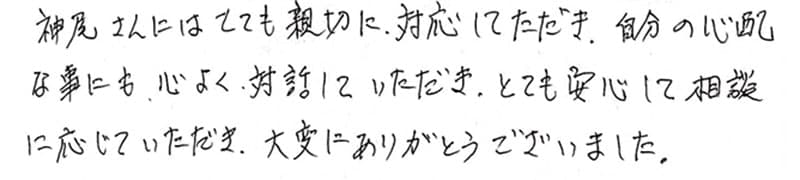 神尾さんにはとても親切に、対応してただき、自分の心配
な事にも、心よく、対話していただき、とても安心して相談
に応じていただき、大変にありがとうございました。